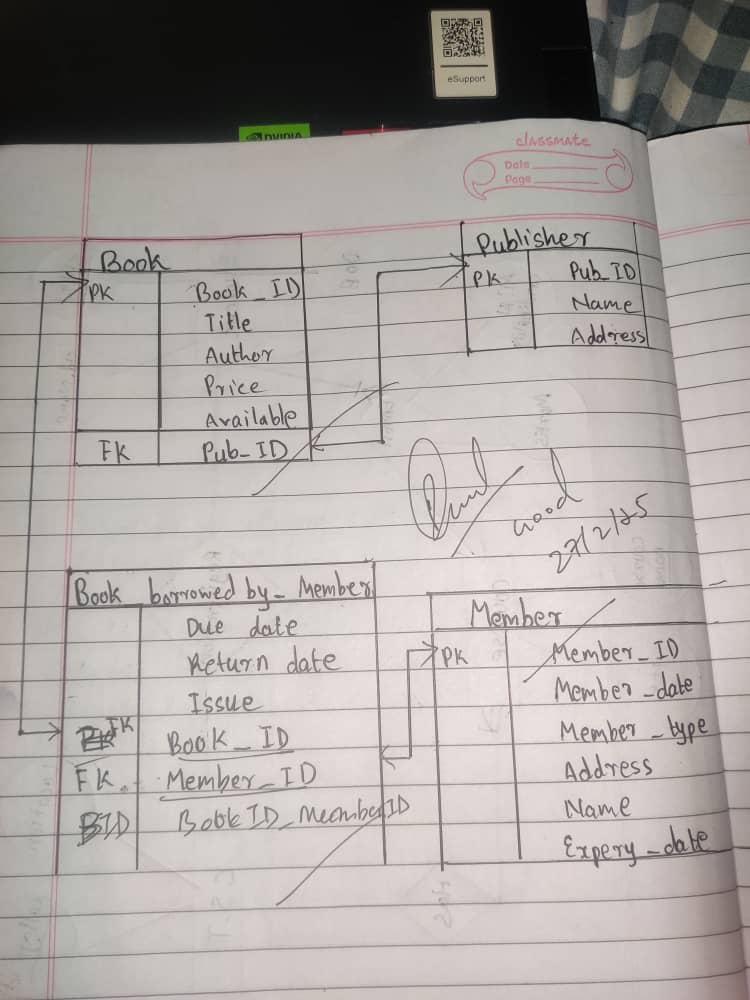 eSupport
NVIDIA
classmate
Date
Page
Book
PK Book_ID
Title
Author
Price
Available
FK Pub_ID
Publisher
PK Pub_ID
Name
Address
Good
27/2/25
Book borrowed by_Member
Due date
Return date
Issue
FK Book_ID
FK. Member_ID
BID BookID_MecmberID
Member
PK Member_ID
Member_date
Member_type
Address
Name
Expery_date